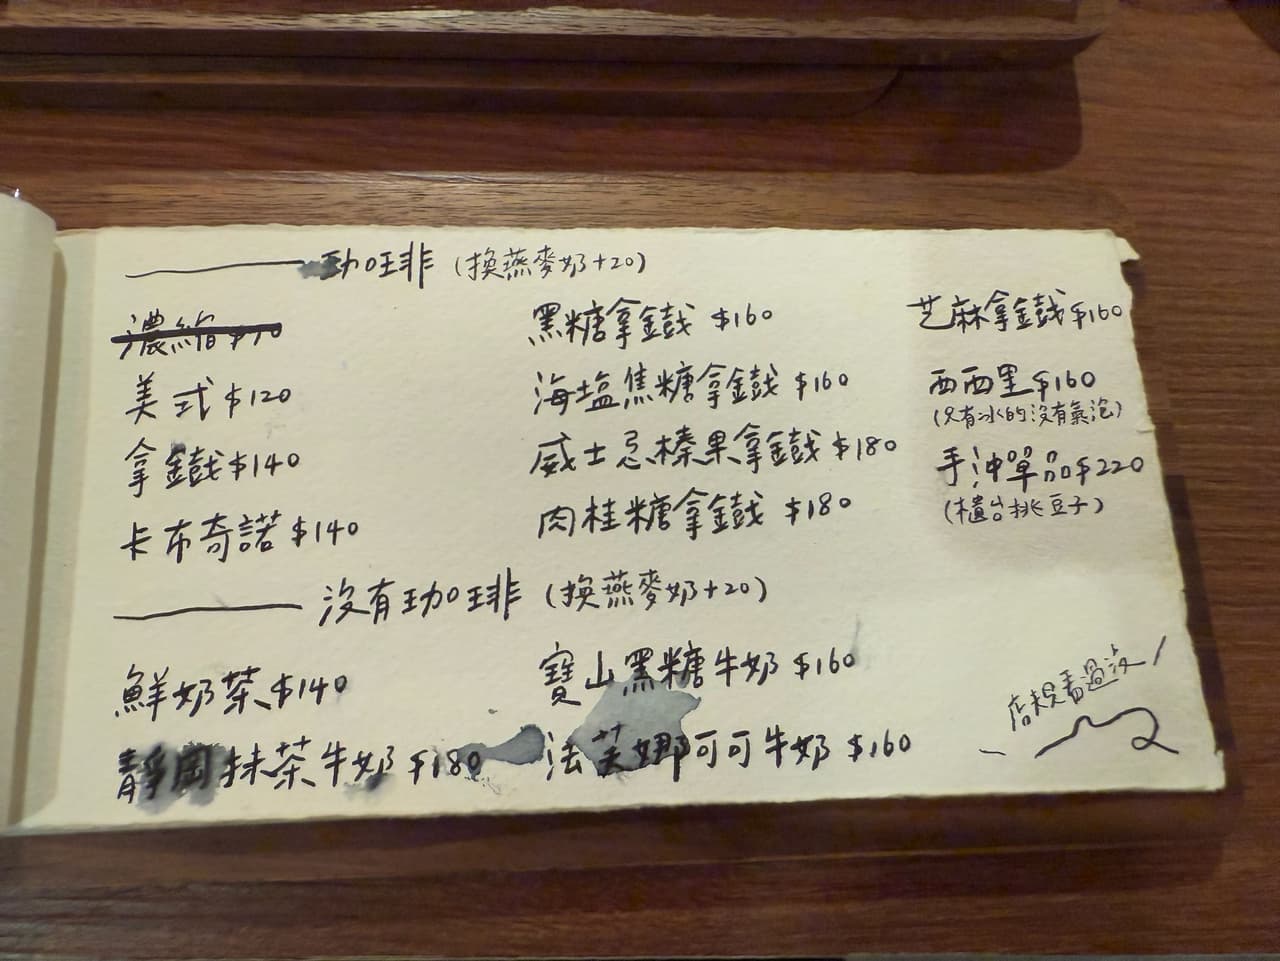 珈琲 (換燕麥奶+20)
濃縮 $70
美式 $120
拿鐵 $140
卡布奇諾 $140
黑糖拿鐵 $160
海塩焦糖拿鐵 $160
威士忌榛果拿鐵 $180
肉桂糖拿鐵 $180
芝麻拿鐵 $160
西西里 $160
(只有冰的沒有氣泡)
手沖單品 $220
(櫃台挑豆子)
沒有珈琲 (換燕麥奶+20)
鮮奶茶 $140
靜岡抹茶牛奶 $180
寶山黑糖牛奶 $160
法芙娜可可牛奶 $160
店規看過沒!